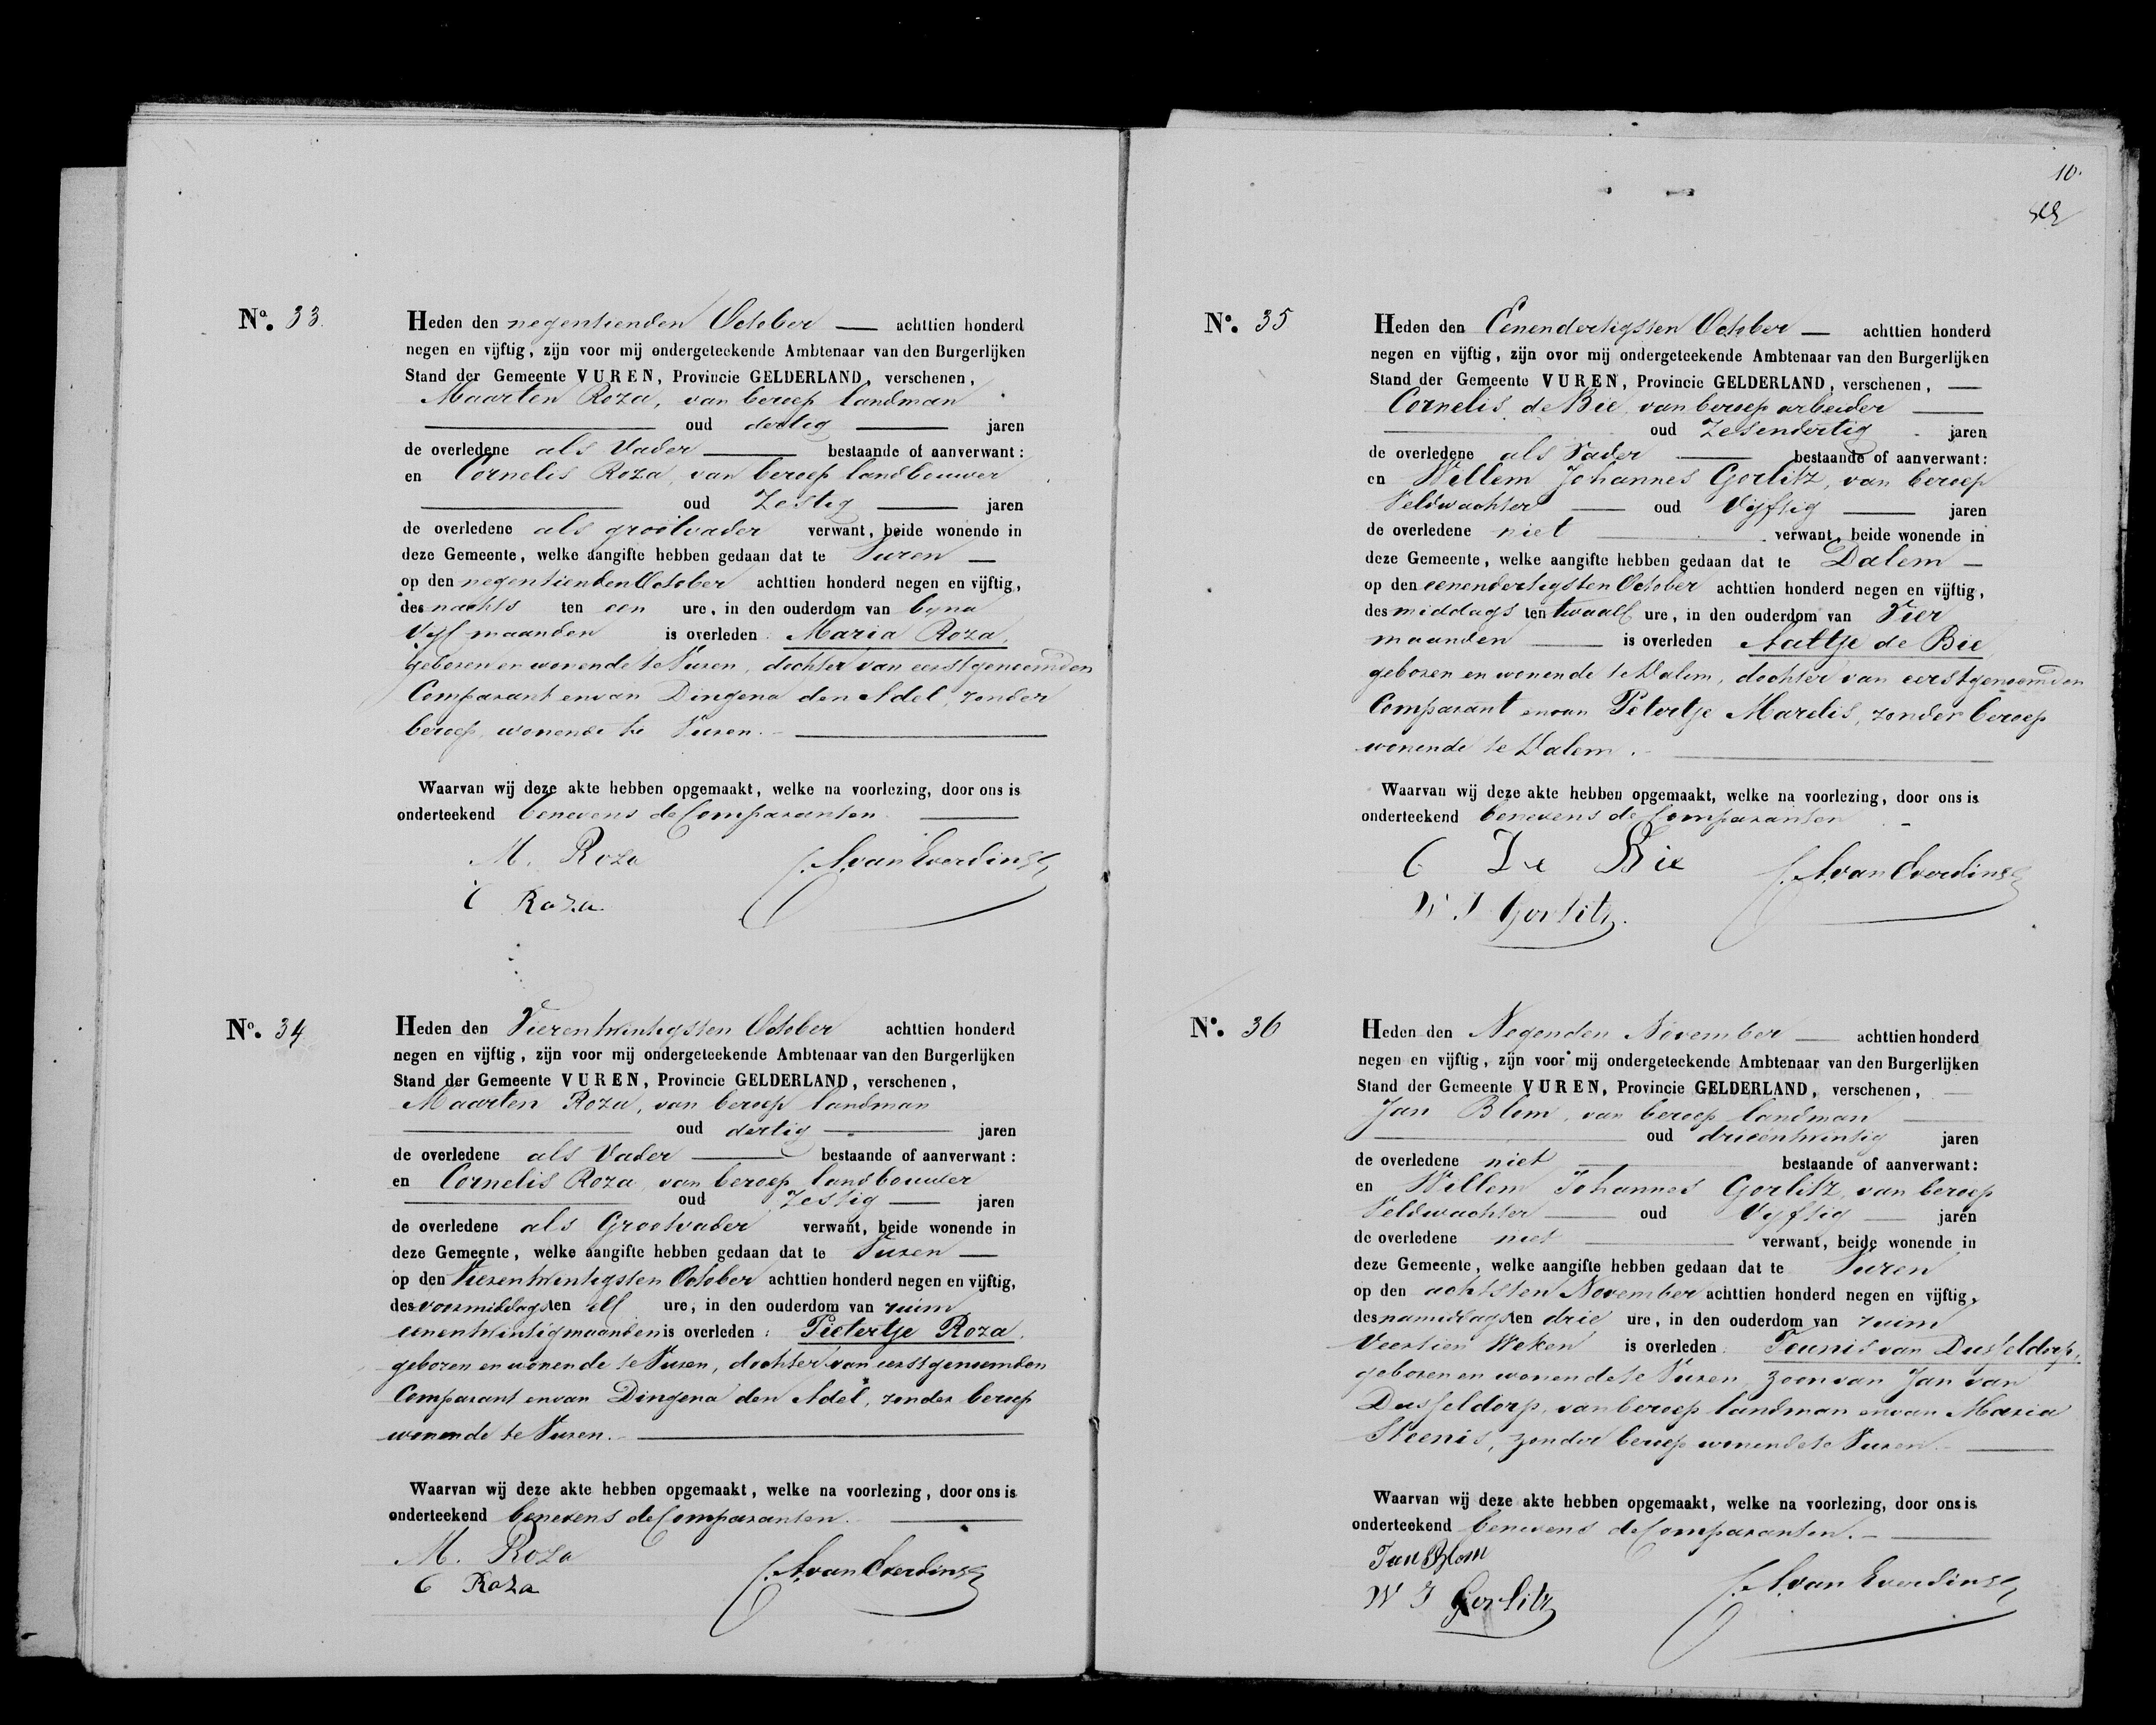 No. 33.
Heden den negentienden October — achttien honderd
negen en vijftig, zijn voor mij ondergeteekende Ambtenaar van den Burgerlijken
Stand der Gemeente VUREN, Provincie GELDERLAND, verschenen,
Maarten Roza, van beroep landman
oud dertig — jaren
de overledene als Vader — bestaande of aanverwant:
en Cornelis Roza, van beroep landbouwer
oud Zestig — jaren
de overledene als grootvader verwant, beide wonende in
deze Gemeente, welke aangifte hebben gedaan dat te Vuren —
op den negentienden October achttien honderd negen en vijftig,
des nachts ten een ure, in den ouderdom van byna
Vijf maanden is overleden: Maria Roza,
geboren en wonende te Vuren, dochter van eerstgenoemden
Comparant en van Dingena den Adel, zonder
beroep, wonende te Vuren. —
Waarvan wij deze akte hebben opgemaakt, welke na voorlezing, door ons is
onderteekend benevens de Comparanten. —
M. Roza
C Roza.
C. A. van Everdingen
No. 34
Heden den Vierentwintigsten October achttien honderd
negen en vijftig, zijn voor mij ondergeteekende Ambtenaar van den Burgerlijken
Stand der Gemeente VUREN, Provincie GELDERLAND, verschenen,
Maarten Roza, van beroep landman
oud dertig — jaren
de overledene als Vader — bestaande of aanverwant:
en Cornelis Roza, van beroep landbouwer
oud Zestig — jaren
de overledene als Grootvader verwant, beide wonende in
deze Gemeente, welke aangifte hebben gedaan dat te Vuren —
op den Vierentwintigsten October achttien honderd negen en vijftig,
des voormiddags ten elf ure, in den ouderdom van ruim
eenentwintig maanden is overleden: Pietertje Roza.
geboren en wonende te Vuren, dochter van eerstgenoemden
Comparant en van Dingena den Adel, zonder beroep
wonende te Vuren. —
Waarvan wij deze akte hebben opgemaakt, welke na voorlezing, door ons is
onderteekend benevens de Comparanten. —
M. Roza
C Roza
C. A. van Everdingen
10.
No. 35
Heden den Eenendertigsten October — achttien honderd
negen en vijftig, zijn ovor mij ondergeteekende Ambtenaar van den Burgerlijken
Stand der Gemeente VUREN, Provincie GELDERLAND, verschenen, —
Cornelis de Bie, van beroep arbeider —
oud Zesendertig jaren
de overledene als Vader — bestaande of aanverwant:
en Willem Johannes Gorlitz, van beroep
Veldwachter — oud Vijftig — jaren
de overledene niet — verwant, beide wonende in
deze Gemeente, welke aangifte hebben gedaan dat te Dalem —
op den eenendertigsten October achttien honderd negen en vijftig,
des middags ten twaalf ure, in den ouderdom van Vier
maanden — is overleden Aaltje de Bie
geboren en wonende te Dalem, dochter van eerstgenoemden
Comparant en van Petertje Marelis, zonder beroep
wonende te Dalem. —
Waarvan wij deze akte hebben opgemaakt, welke na voorlezing, door ons is
onderteekend benevens de Comparanten —
C De Bie
W J Gorlitz.
C. A. van Everdingen
No. 36
Heden den Negenden November — achttien honderd
negen en vijftig, zijn voor mij ondergeteekende Ambtenaar van den Burgerlijken
Stand der Gemeente VUREN, Provincie GELDERLAND, verschenen, —
Jan Blom, van beroep landman —
oud drieëntwintig jaren
de overledene niet — bestaande of aanverwant:
en Willem Johannes Gorlitz, van beroep
Veldwachter — oud Vyftig — jaren
de overledene niet — verwant, beide wonende in
deze Gemeente, welke aangifte hebben gedaan dat te Vuren
op den achtsten November achttien honderd negen en vijftig,
des namiddags ten drie ure, in den ouderdom van ruim
Veertien Weken is overleden: Teunis van Dusseldorp,
geboren en wonende te Vuren zoon van Jan van
Dusseldorp, van beroep landman en van Maria
Steenis, zonder beroep wonende te Vuren. —
Waarvan wij deze akte hebben opgemaakt, welke na voorlezing, door ons is
onderteekend benevens de Comparanten. —
Jan Blom
W J Gorlitz
C. A. van Everdingen